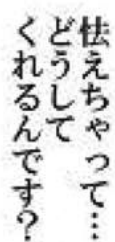 怯えちゃって…
どうして
くれるんです？